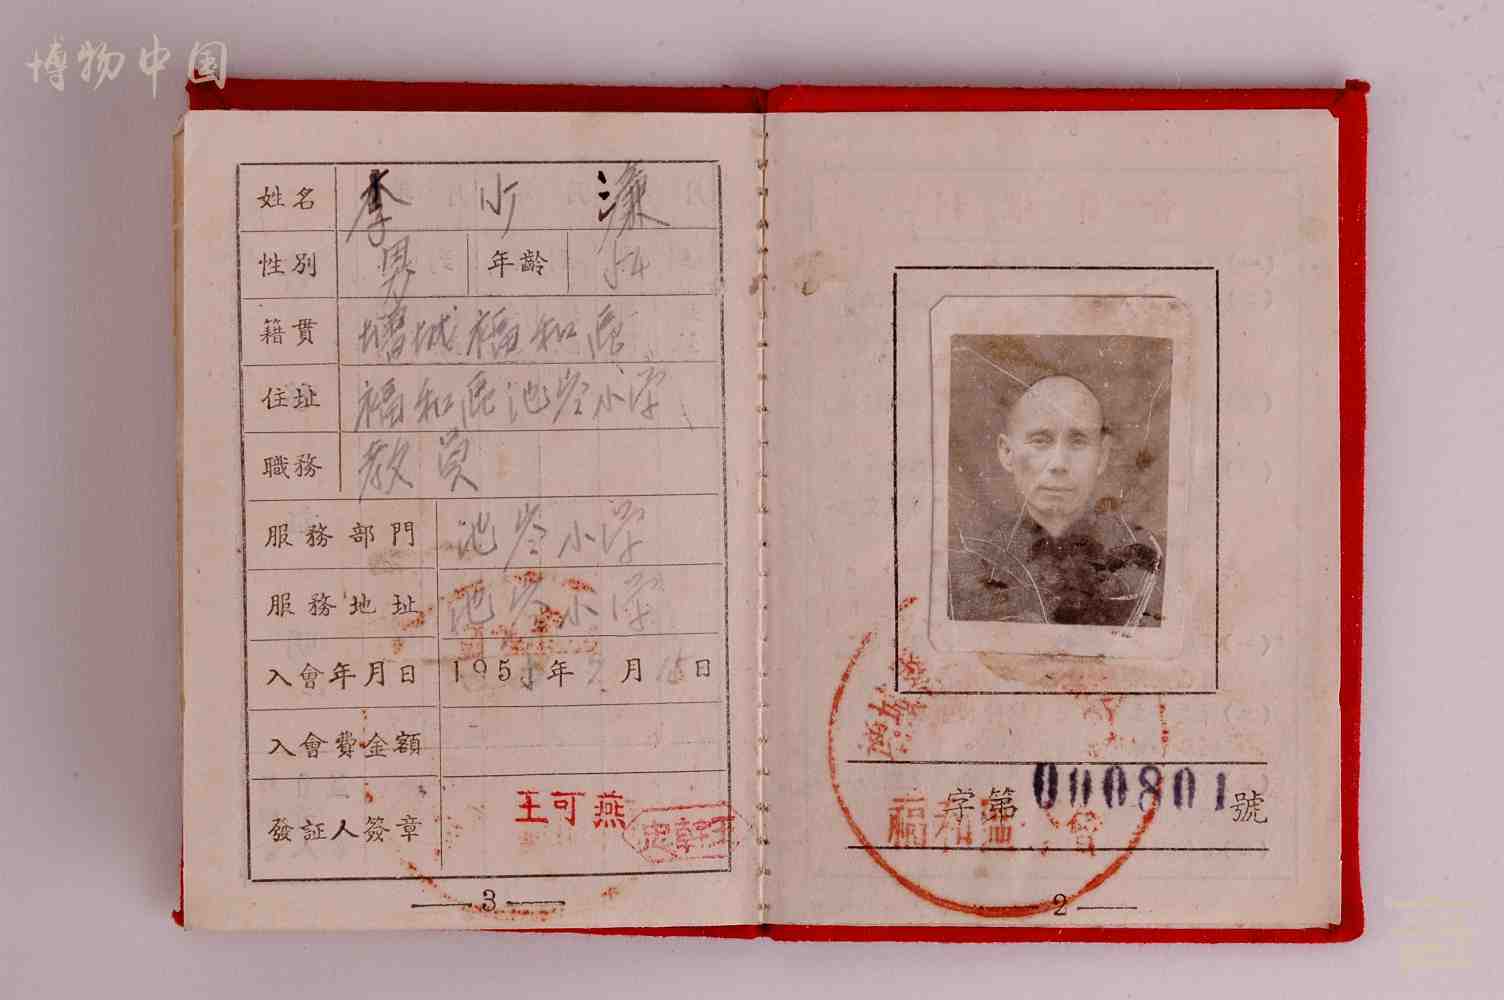 博物中国
姓名 李少濂
性別 男 年齡 54
籍貫 增城福和區
住址 福和區池岑小学
職務 教員
服務部門 池岑小学
服務地址 池岑小学
入會年月日 195 年 7 月 15 日
入會費金額
發証人簽章 王可燕
3
字第000801號
福和區 會
2